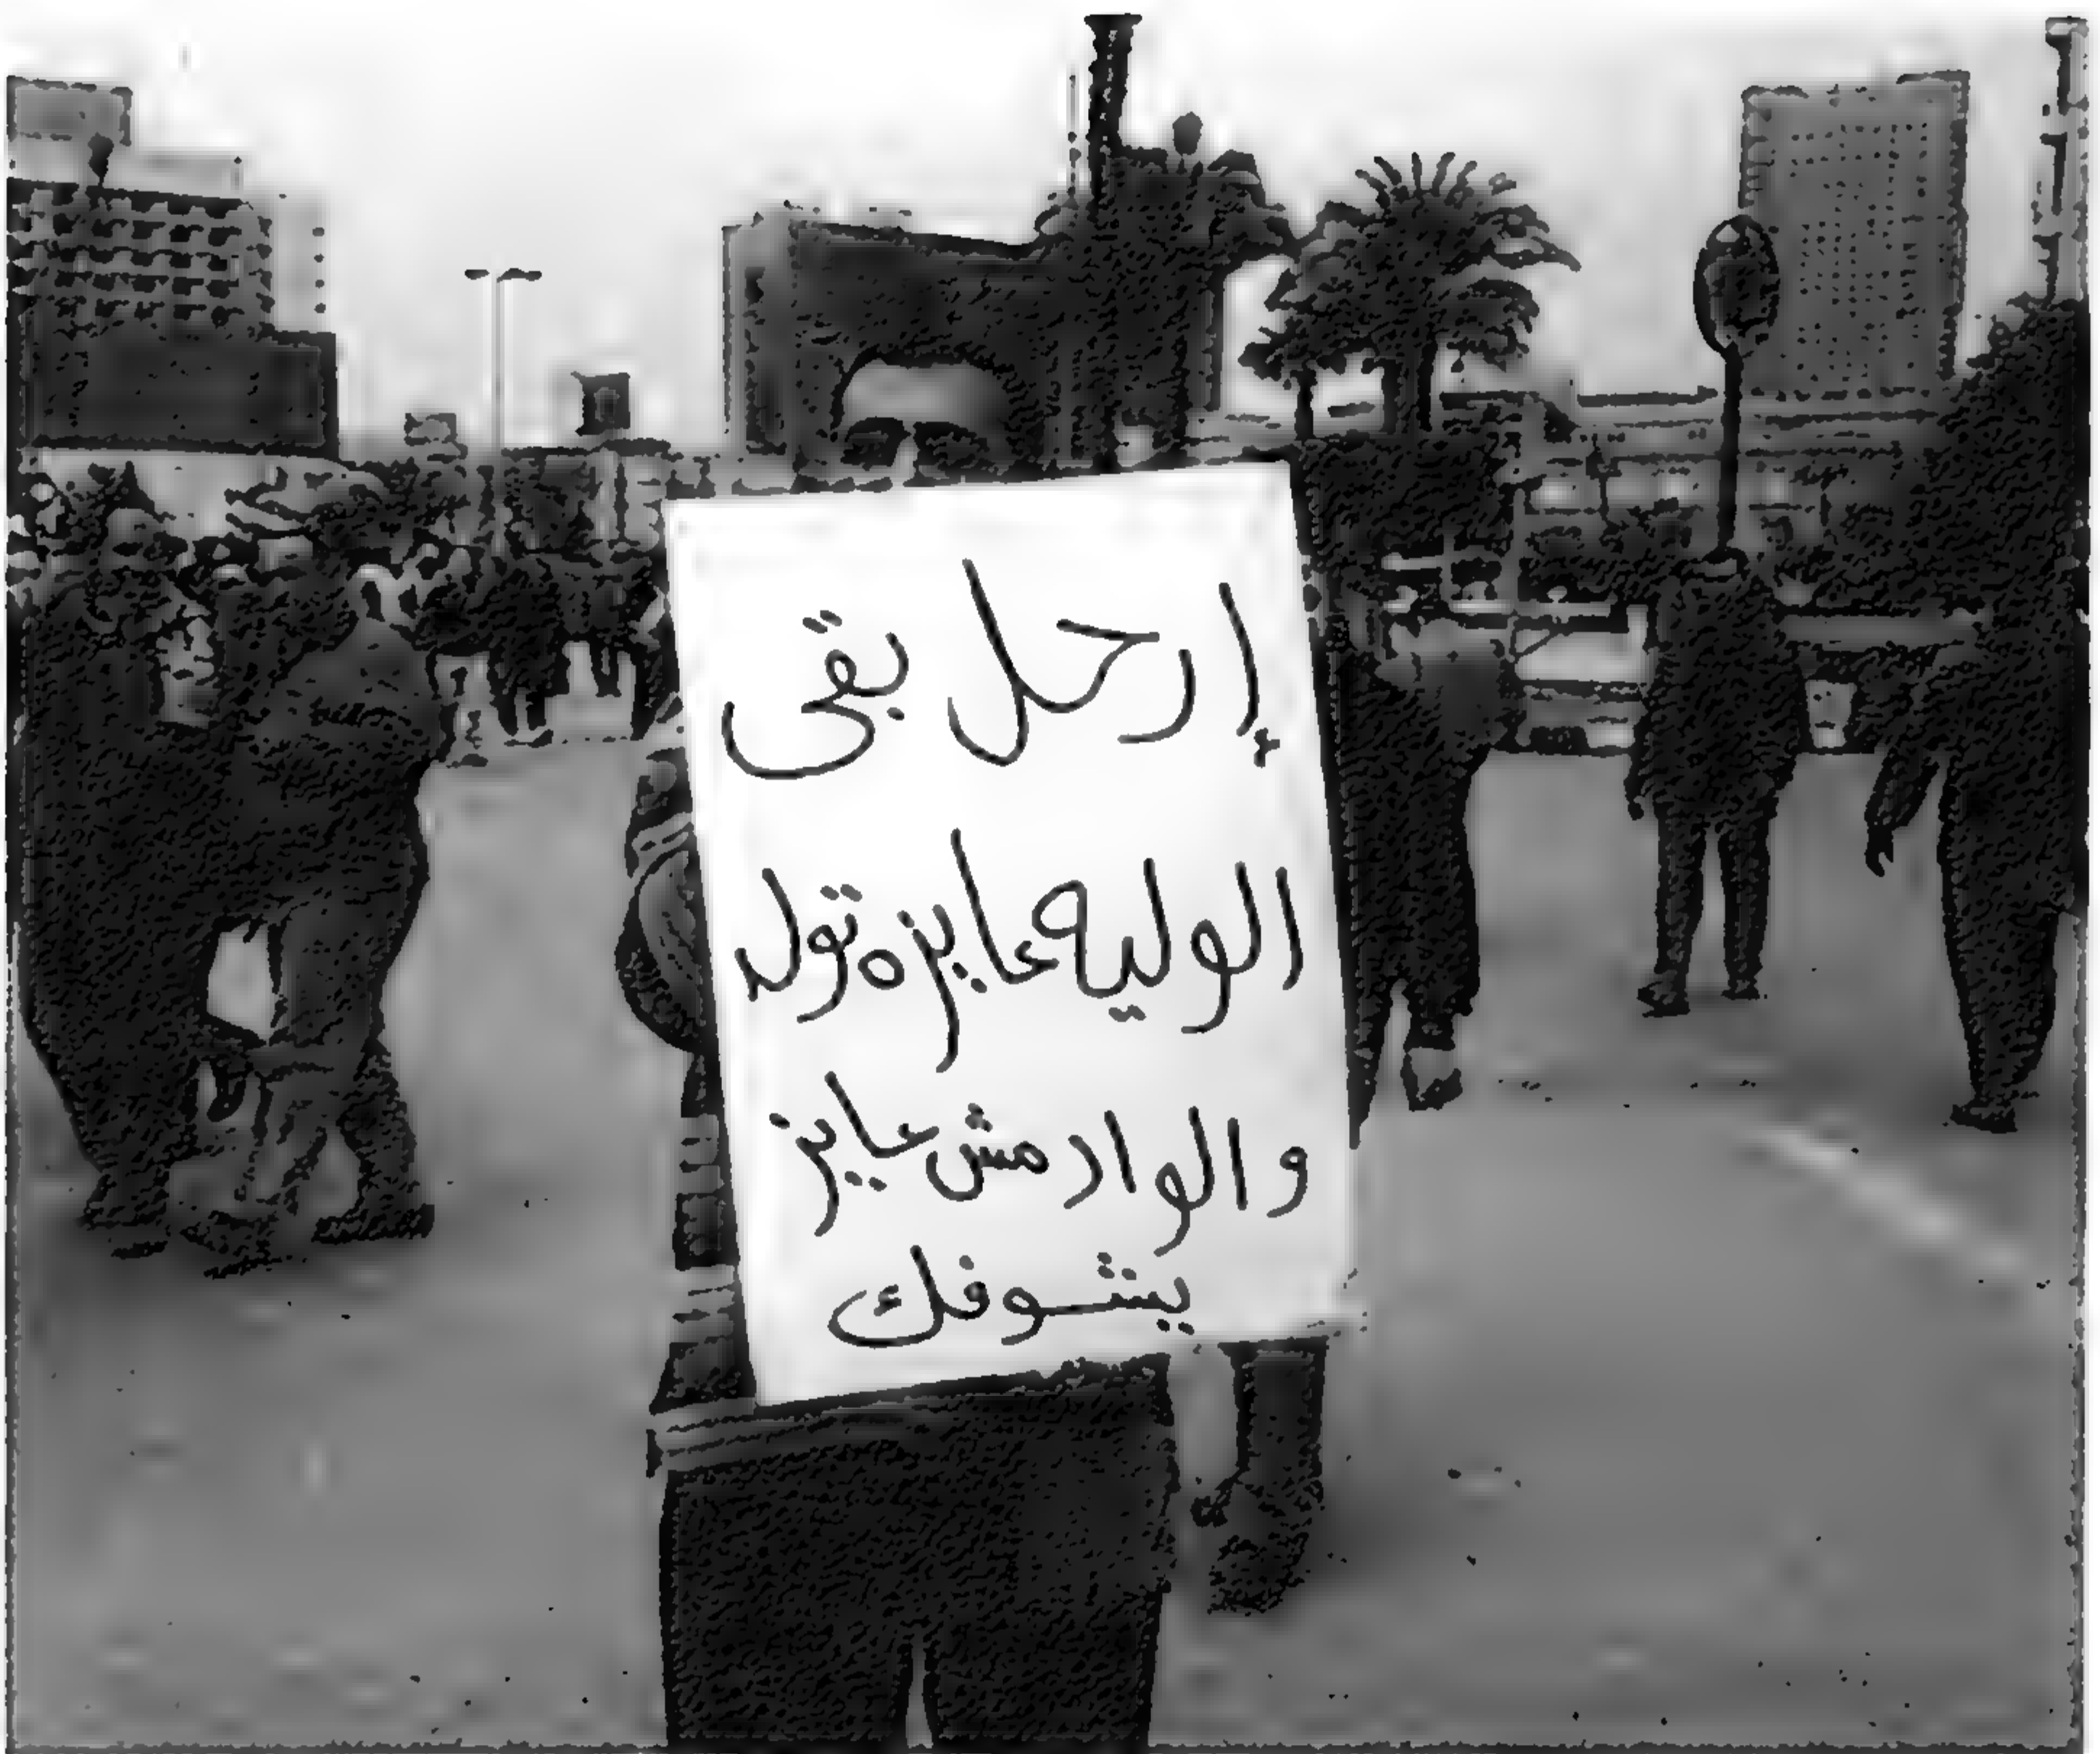 إرحل بقى
الوليه عايزه تولد
والواد مش عايز
يشوفك